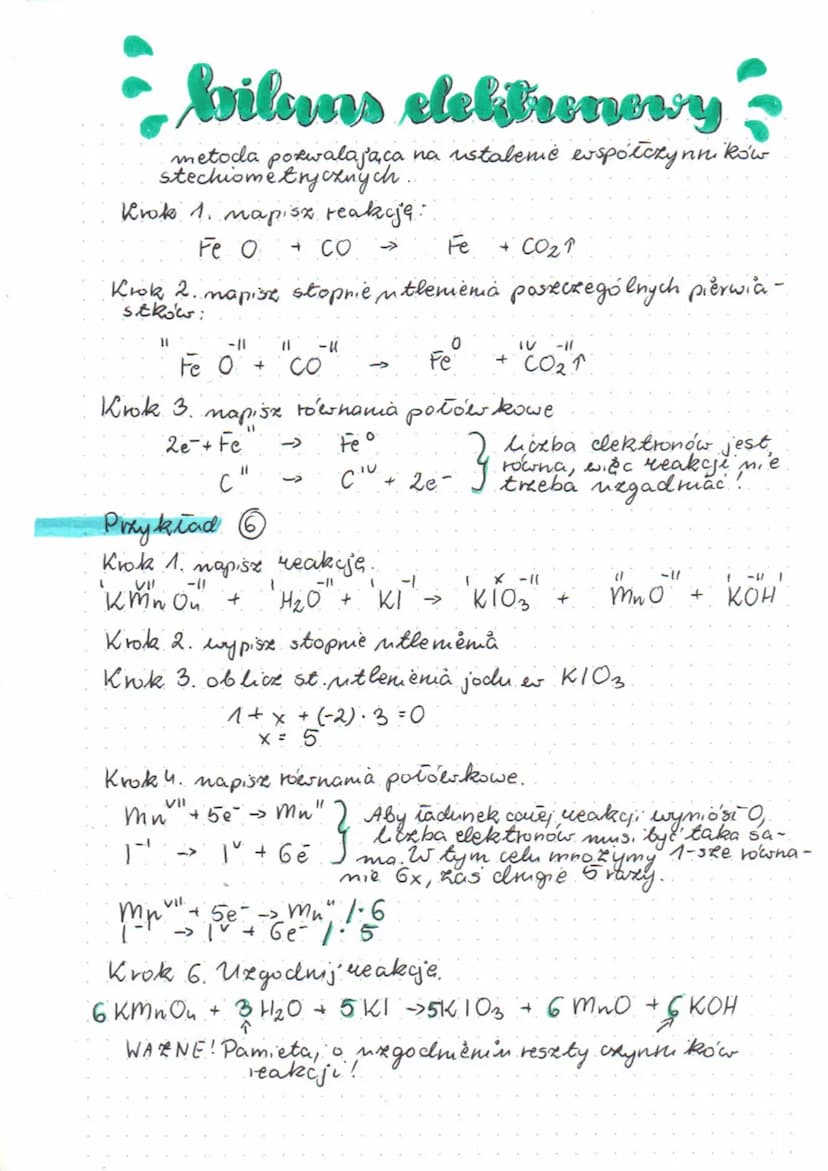 bilans elektronowy
metoda pozwalająca na ustalenie współczynników
stechiometrycznych.
Krok 1. napisz reakcję:
Fe O + CO → Fe + CO₂↑
Krok 2. napisz stopnie utlenienia poszczególnych pierwia-
stków:
ᴵᴵFe O⁻ᴵᴵ + ᴵᴵCO⁻ᴵᴵ → Fe⁰ + ᴵⱽCO₂⁻ᴵᴵ↑
Krok 3. napisz równania połówkowe
2e⁻ + Feᴵᴵ → Fe⁰ } liczba elektronów jest
Cᴵᴵ → Cᴵⱽ + 2e⁻ równa, więc reakcji nie
trzeba uzgadniać!
Przykład ⑥
Krok 1. napisz reakcję.
ᴵKMnⱽᴵᴵO₄⁻ᴵᴵ + ᴵH₂O⁻ᴵᴵ + ᴵKI⁻ᴵ → ᴵKIˣO₃⁻ᴵᴵ + ᴵᴵMnO⁻ᴵᴵ + ᴵKO⁻ᴵᴵHᴵ
Krok 2. wypisz stopnie utlenienia
Krok 3. oblicz st. utlenienia jodu w KIO₃
1 + x + (-2) · 3 = 0
x = 5
Krok 4. napisz równania połówkowe.
Mnⱽᴵᴵ + 5e⁻ → Mnᴵᴵ } Aby ładunek całej reakcji wyniósł 0,
I⁻ᴵ → Iⱽ + 6e⁻ liczba elektronów musi być taka sa-
ma. W tym celu mnożymy 1-sze równa-
nie 6x, zaś drugie 5 razy.
Mnⱽᴵᴵ + 5e⁻ → Mnᴵᴵ /· 6
I⁻ᴵ → Iⱽ + 6e⁻ /· 5
Krok 6. Uzgodnij reakcję.
6 KMnO₄ + 3 H₂O + 5 KI → 5KIO₃ + 6 MnO + 6 KOH
WAŻNE! Pamiętaj o uzgodnieniu reszty czynników
reakcji!